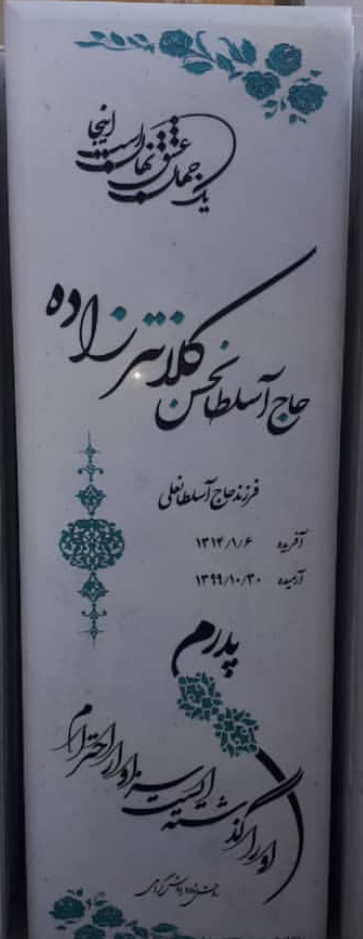 یک جهان عشق نهان است اینجا
حاج آسلطانحسن کلانترزاده
فرزند حاج آسلطانعلی
آفریده ۱۳۱۴/۱/۶
آرمیده ۱۳۹۹/۱۰/۳۰
پدرم
او را گذشته ایست سزاوار احترام